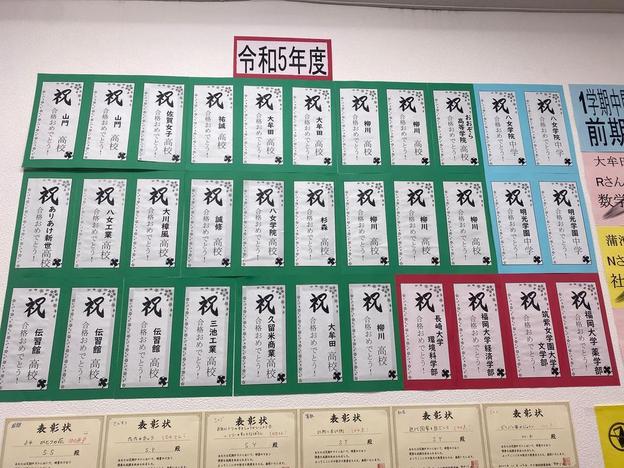 令和5年度
祝 山門高校 合格おめでとう!
祝 山門高校 合格おめでとう!
祝 佐賀女子高校 合格おめでとう!
祝 祐誠高校 合格おめでとう!
祝 大牟田高校 合格おめでとう!
祝 大牟田高校 合格おめでとう!
祝 柳川高校 合格おめでとう!
祝 柳川高校 合格おめでとう!
祝 おおぞら高等学院高校 合格おめでとう!
祝 八女学院中学 合格おめでとう!
祝 八女学院中学 合格おめでとう!
祝 ありあけ新世高校 合格おめでとう!
祝 八女工業高校 合格おめでとう!
祝 大川樟風高校 合格おめでとう!
祝 誠修高校 合格おめでとう!
祝 八女学院高校 合格おめでとう!
祝 杉森高校 合格おめでとう!
祝 柳川高校 合格おめでとう!
祝 柳川高校 合格おめでとう!
祝 柳川高校 合格おめでとう!
祝 明光学園中学 合格おめでとう!
祝 明光学園中学 合格おめでとう!
祝 伝習館高校 合格おめでとう!
祝 伝習館高校 合格おめでとう!
祝 伝習館高校 合格おめでとう!
祝 三池工業高校 合格おめでとう!
祝 久留米商業高校 合格おめでとう!
祝 大牟田高校 合格おめでとう!
祝 柳川高校 合格おめでとう!
祝 長崎大学 環境科学部 合格おめでとう!
祝 福岡大学 経済学部 合格おめでとう!
祝 筑紫女学園大学 文学部 合格おめでとう!
祝 福岡大学 薬学部 合格おめでとう!
1学期中
前期
大牟田
Rさん
数学
蒲池
Nさん
社
表彰状
S.S 殿
表彰状
S.Y 殿
表彰状
S.Y 殿
表彰状
S.Y 殿
表彰状
S.Y 殿
表彰状
殿